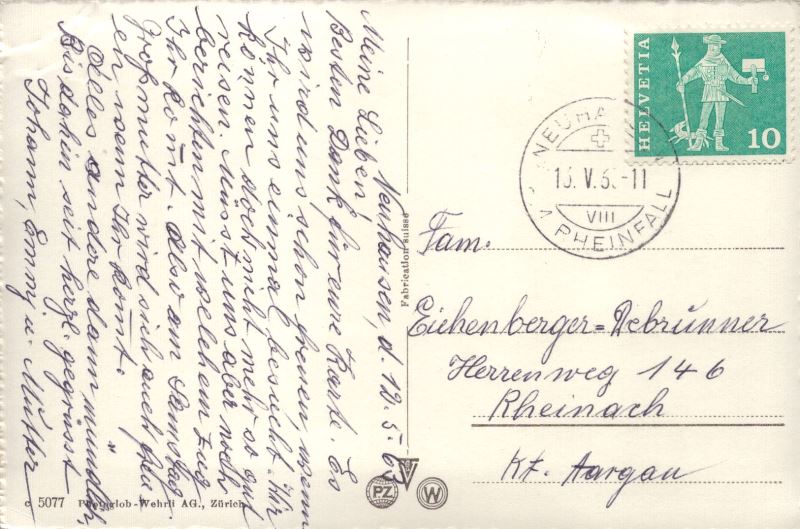 Neuhausen, d. 12. 5. 63
Meine Lieben,
Besten Dank für eure Karte. Es
wird uns schon freuen wenn
Ihr uns einmal besucht. Wir
können doch nicht mehr so gut
reisen. Müsst uns aber noch
berichten mit welchem Zug
Ihr komt. Also am Samstag.
Großmutter wird sich auch freu
en wenn Ihr komt.
Alles andere dann mündlich,
Bis dahin seit herzl. gegrüsst
Johann, Emmy u. Mutter
Fabrication suisse
HELVETIA
10
NEUHA
13. V. 63-11
VIII
A. RHEINFALL
Fam.
Eichenberger-Debrunner
Herrenweg 146
Rheinach
Kt. Aargau
PZ
W
c 5077 Photoglob-Wehrli AG., Zürich